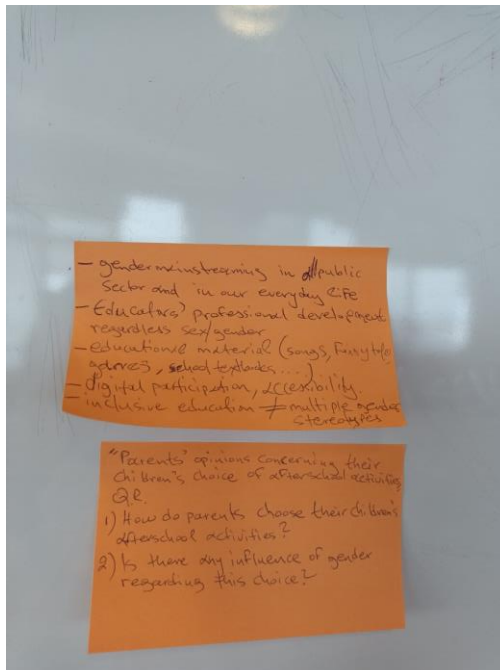 - gendermainstreaming in all public
sector and in our everyday life
- Educators' professional development
regardless sex/gender
- educational material (songs, fairytales
games, school textbooks ...)
- digital participation, accessibility.
- inclusive education ≠ multiple gender
stereotypes
"Parents' opinions concerning their
children's choice of afterschool activities
Q.R.
1) How do parents choose their children's
afterschool activities?
2) Is there any influence of gender
regarding this choice?